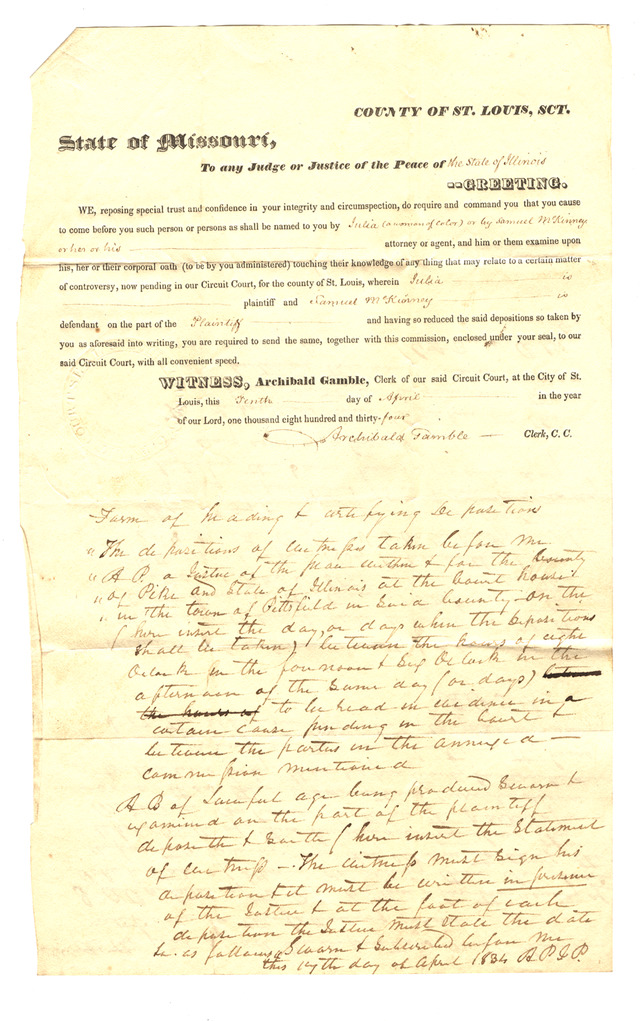 COUNTY OF ST. LOUIS, SCT.
State of Missouri,
To any Judge or Justice of the Peace of the State of Illinois
--GREETING.
WE, reposing special trust and confidence in your integrity and circumspection, do require and command you that you cause
to come before you such person or persons as shall be named to you by Julia (a woman of color) or by Samuel McKinney
or her or his attorney or agent, and him or them examine upon
his, her or their corporal oath (to be by you administered) touching their knowledge of any thing that may relate to a certain matter
of controversy, now pending in our Circuit Court, for the county of St. Louis, wherein Julia is
plaintiff and Samuel McKinney is
defendant on the part of the Plaintiff and having so reduced the said depositions so taken by
you as aforesaid into writing, you are required to send the same, together with this commission, enclosed under your seal, to our
said Circuit Court, with all convenient speed.
WITNESS, Archibald Gamble, Clerk of our said Circuit Court, at the City of St.
Louis, this Tenth day of April in the year
of our Lord, one thousand eight hundred and thirty-four
Archibald Gamble Clerk, C. C.
Form of heading & certifying Deposition
"The depositions of witnesses taken before me
"A P. a Justice of the peace within & for the County
"of Pike and State of Illinois at the Court house
"in the town of Pittsfield in said County - on the
(here insert the day or days when the depositions
shall be taken) between the hours of eight
Oclock in the forenoon & six Oclock in the
afternoon of the same day (or days) between
the hours of to be read in evidence in a
certain cause pending in the Court &
between the parties in the annexed -
commission mentioned
A B of Lawful age being produced sworn &
examined on the part of the plaintiff
deposeth & saith (here insert the Statement
of witness - The witness must sign his
deposition & it must be written in presence
of the Justice & at the foot of each
deposition the Justice must state the date
&c. as follows "Sworn & Subscribed before me
this 17th day of April 1834 A P J P.